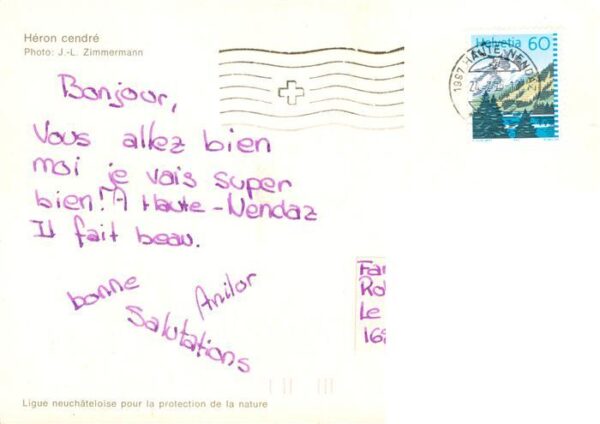 Héron cendré
Photo: J.-L. Zimmermann
Helvetia 60
1997 HAUTE-NENDAZ
Bonjour,
Vous allez bien
moi je vais super
bien! A Haute-Nendaz
Il fait beau.
bonne Anilor
Salutations
Fa
Ro
Le
16
Ligue neuchâteloise pour la protection de la nature